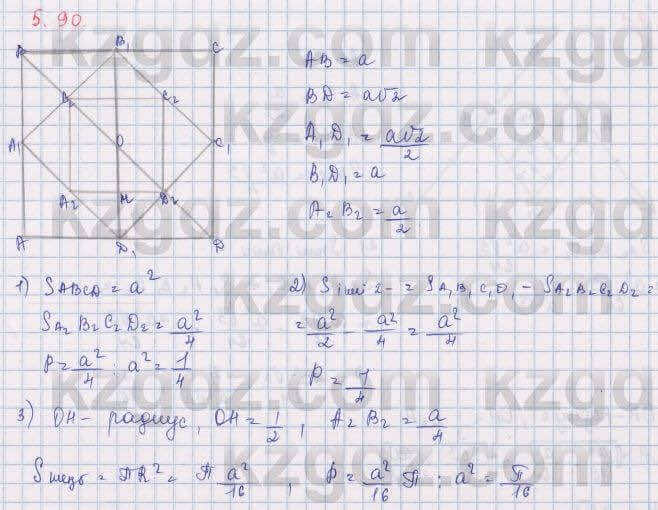 5.90
B B₁ C
B₂ C₂
A₁ O C₁
A₂ H D₂
A D₁ D
AB = a
BD = a√2
A₁D₁ = a√2/2
B₁D₁ = a
A₂B₂ = a/2
1) SABCD = a²
SA₂B₂C₂D₂ = a²/4
P = a²/4 : a² = 1/4
2) S 2- = SA₁B₁C₁D₁ - SA₂B₂C₂D₂ =
= a²/2 - a²/4 = a²/4
P = 1/4
3) OH - радиус, OH = 1/2, A₂B₂ = a/4
S = πR² = π a²/16, P = a²/16 π : a² = π/16
kzgdz.com